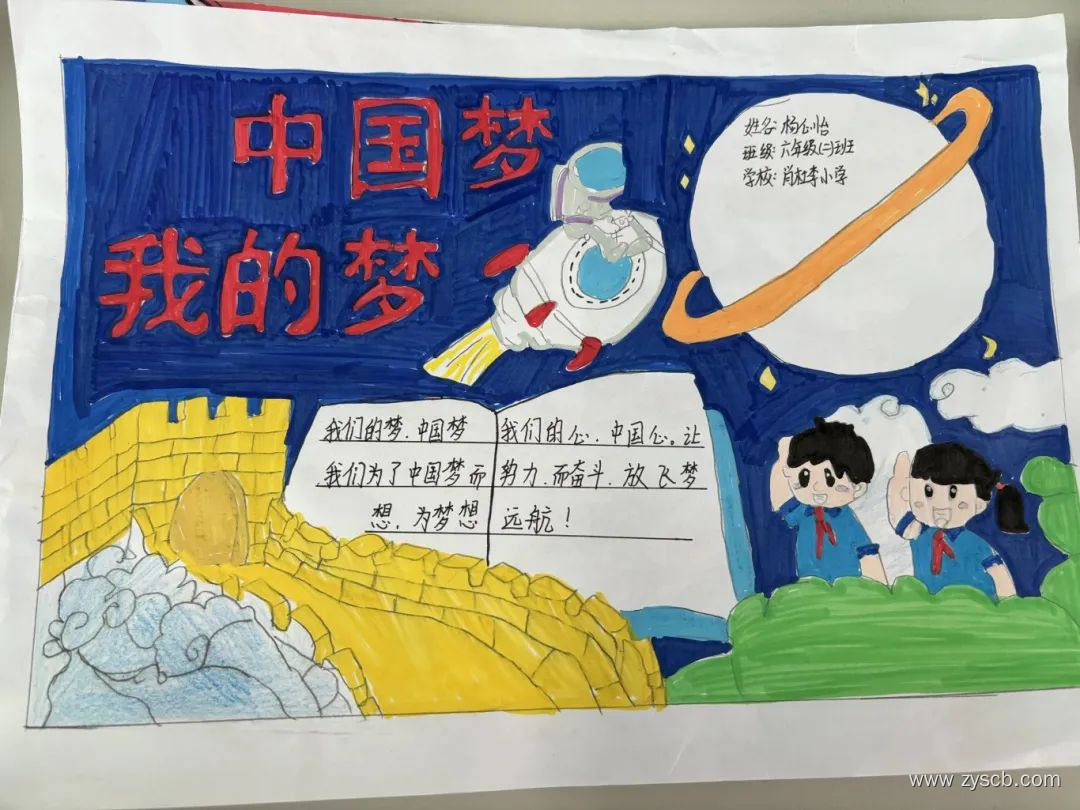 中国梦
我的梦
姓名:杨心怡
班级:六年级(二)班
学校:肖杜李小学
我们的梓.中国梦 我们的心.中国心。让
我们为了中国梦而 努力.而奋斗.放飞梦
想.为梦想 远航!
www.zyscb.com